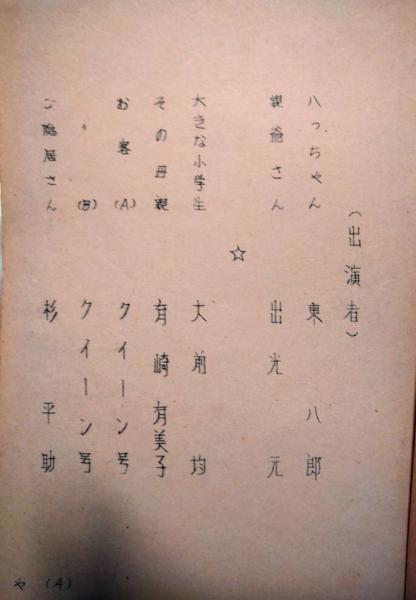 (出演者)
八っちゃん 東八郎
親爺さん 出光元
☆
大きな小学生 大前均
その母親 有崎有美子
お客(A) クイーン号
〃(B) クイーン号
ご隠居さん 杉平助
や (A)